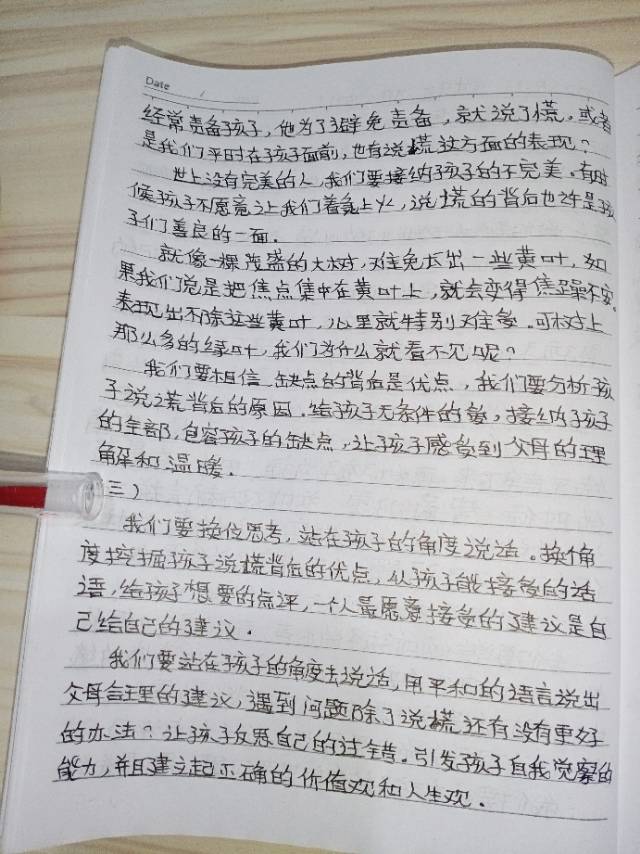 Date /
经常责备孩子，他为了避免责备，就说了慌。或者
是我们平时在孩子面前，也有说慌这方面的表现？
世上没有完美的人，我们要接纳孩子的不完美。有时
候孩子不愿意让我们着急上火，说慌的背后也许是孩
子们善良的一面。
就像一棵茂盛的大树，难免长出一些黄叶，如
果我们总是把焦点集中在黄叶上，就会变得焦躁不安，
表现出不除这些黄叶，心里就特别难受。可树上
那么多的绿叶，我们为什么就看不见呢？
我们要相信缺点的背后是优点，我们要分析孩
子说谎背后的原因。给孩子无条件的爱，接纳孩子
的全部，包容孩子的缺点，让孩子感受到父母的理
解和温暖。
三）
我们要换位思考，站在孩子的角度说话。换个角
度挖掘孩子说慌背后的优点，从孩子能接受的话
语，给孩子想要的点评，一个人最愿意接受的建议是自
己给自己的建议。
我们要站在孩子的角度去说话，用平和的语言说出
父母合理的建议，遇到问题除了说慌还有没有更好
的办法？让孩子反思自己的过错。引发孩子自我觉察的
能力，并且建立起正确的价值观和人生观。